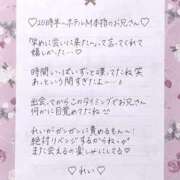 ♡20時半〜ホテルM本指のお兄さん♡
早めに会いに来た〜って言ってくれて
嬉しかった…♡
時間いっぱいずっと喋ってたね笑
あっという間すぎたよ…♪
出会ってからこのタイミングでお兄さん
何かに目覚めてたね
れいがガンガンに責めるもん〜!
絶対リベンジするからね〜が
また会えるの楽しみにしてる
♡れい♡